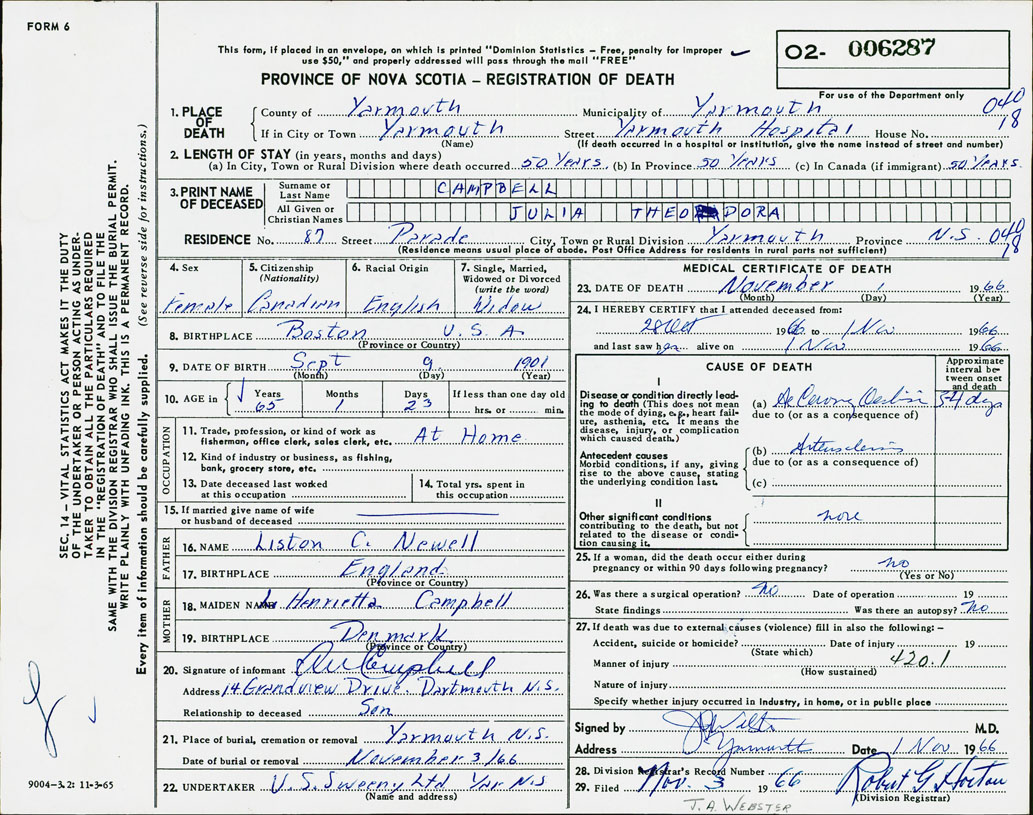 FORM 6
This form, if placed in an envelope, on which is printed "Dominion Statistics – Free, penalty for improper
use $50," and properly addressed will pass through the mail "FREE"
O2- 006287
PROVINCE OF NOVA SCOTIA – REGISTRATION OF DEATH
For use of the Department only
040
18
1. PLACE OF DEATH
County of Yarmouth Municipality of Yarmouth
If in City or Town Yarmouth Street Yarmouth Hospital House No.
(Name) (If death occurred in a hospital or institution, give the name instead of street and number)
2. LENGTH OF STAY (in years, months and days)
(a) In City, Town or Rural Division where death occurred 50 Years. (b) In Province 50 Years (c) In Canada (if immigrant) 50 Years.
3. PRINT NAME OF DECEASED
Surname or Last Name CAMPBELL
All Given or Christian Names JULIA THEODORA
RESIDENCE No. 87 Street Parade City, Town or Rural Division Yarmouth Province N.S. 040
18
(Residence means usual place of abode. Post Office Address for residents in rural parts not sufficient)
4. Sex
Female
5. Citizenship (Nationality)
Canadian
6. Racial Origin
English
7. Single, Married, Widowed or Divorced (write the word)
Widow
8. BIRTHPLACE Boston U.S.A
(Province or Country)
9. DATE OF BIRTH Sept 9 1901
(Month) (Day) (Year)
10. AGE in Years Months Days If less than one day old
65 1 23 hrs. or min.
OCCUPATION
11. Trade, profession, or kind of work as fisherman, office clerk, sales clerk, etc. At Home
12. Kind of industry or business, as fishing, bank, grocery store, etc.
13. Date deceased last worked at this occupation
14. Total yrs. spent in this occupation
15. If married give name of wife or husband of deceased
FATHER
16. NAME Liston C. Newell
17. BIRTHPLACE England
(Province or Country)
MOTHER
18. MAIDEN NAME Henrietta Campbell
19. BIRTHPLACE Denmark
(Province or Country)
20. Signature of informant Campbell
Address 14 Grandview Drive. Dartmouth N.S.
Relationship to deceased Son
21. Place of burial, cremation or removal Yarmouth N.S.
Date of burial or removal November 3/66
22. UNDERTAKER V.S. Sweeny Ltd Yar N.S
(Name and address)
MEDICAL CERTIFICATE OF DEATH
23. DATE OF DEATH November 1 1966
(Month) (Day) (Year)
24. I HEREBY CERTIFY that I attended deceased from:
28 Oct 1966 to 1 Nov 1966
and last saw her alive on 1 Nov 1966
CAUSE OF DEATH
Approximate interval between onset and death
I
Disease or condition directly leading to death (This does not mean the mode of dying, e.g., heart failure, asthenia, etc. It means the disease, injury, or complication which caused death.)
(a)
due to (or as a consequence of)
Antecedent causes
Morbid conditions, if any, giving rise to the above cause, stating the underlying condition last.
(b)
due to (or as a consequence of)
(c)
II
Other significant conditions contributing to the death, but not related to the disease or condition causing it.
none
25. If a woman, did the death occur either during pregnancy or within 90 days following pregnancy? no
(Yes or No)
26. Was there a surgical operation? no Date of operation 19
State findings Was there an autopsy? no
27. If death was due to external causes (violence) fill in also the following: –
Accident, suicide or homicide? Date of injury 19
(State which)
Manner of injury 420.1
(How sustained)
Nature of injury
Specify whether injury occurred in Industry, in home, or in public place
Signed by M.D.
Address Yarmouth Date 1 Nov 1966
28. Division Registrar's Record Number
29. Filed Nov. 3 1966 Robert G Horton
(Division Registrar)
J. A. WEBSTER
SEC. 14 – VITAL STATISTICS ACT MAKES IT THE DUTY
OF THE UNDERTAKER OR PERSON ACTING AS UNDER-
TAKER TO OBTAIN ALL THE PARTICULARS REQUIRED
IN THE "REGISTRATION OF DEATH" AND TO FILE THE
SAME WITH THE DIVISION REGISTRAR WHO SHALL ISSUE THE BURIAL PERMIT.
WRITE PLAINLY WITH UNFADING INK. THIS IS A PERMANENT RECORD.
Every item of information should be carefully supplied. (See reverse side for instructions.)
9004–3.2: 11-3-65